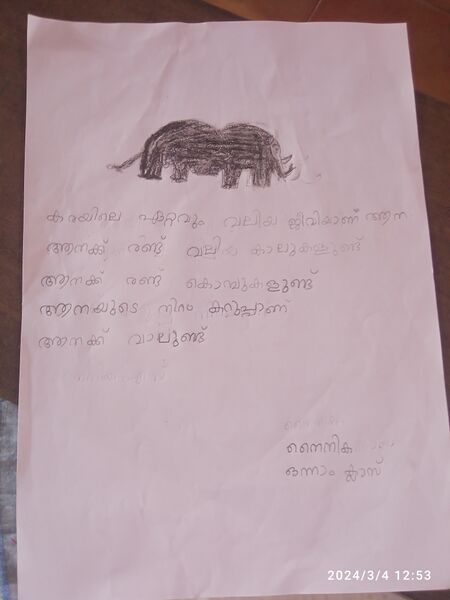 കരയിലെ ഏറ്റവും വലിയ ജീവിയാണ് ആന
ആനക്ക് രണ്ട് വലിയ കാലുകളുണ്ട്
ആനക്ക് രണ്ട് കൊമ്പുകളുണ്ട്
ആനയുടെ നിറം കറുപ്പാണ്
ആനക്ക് വാലുണ്ട്
നൈനിക
ഒന്നാം ക്ലാസ്
2024/3/4 12:53